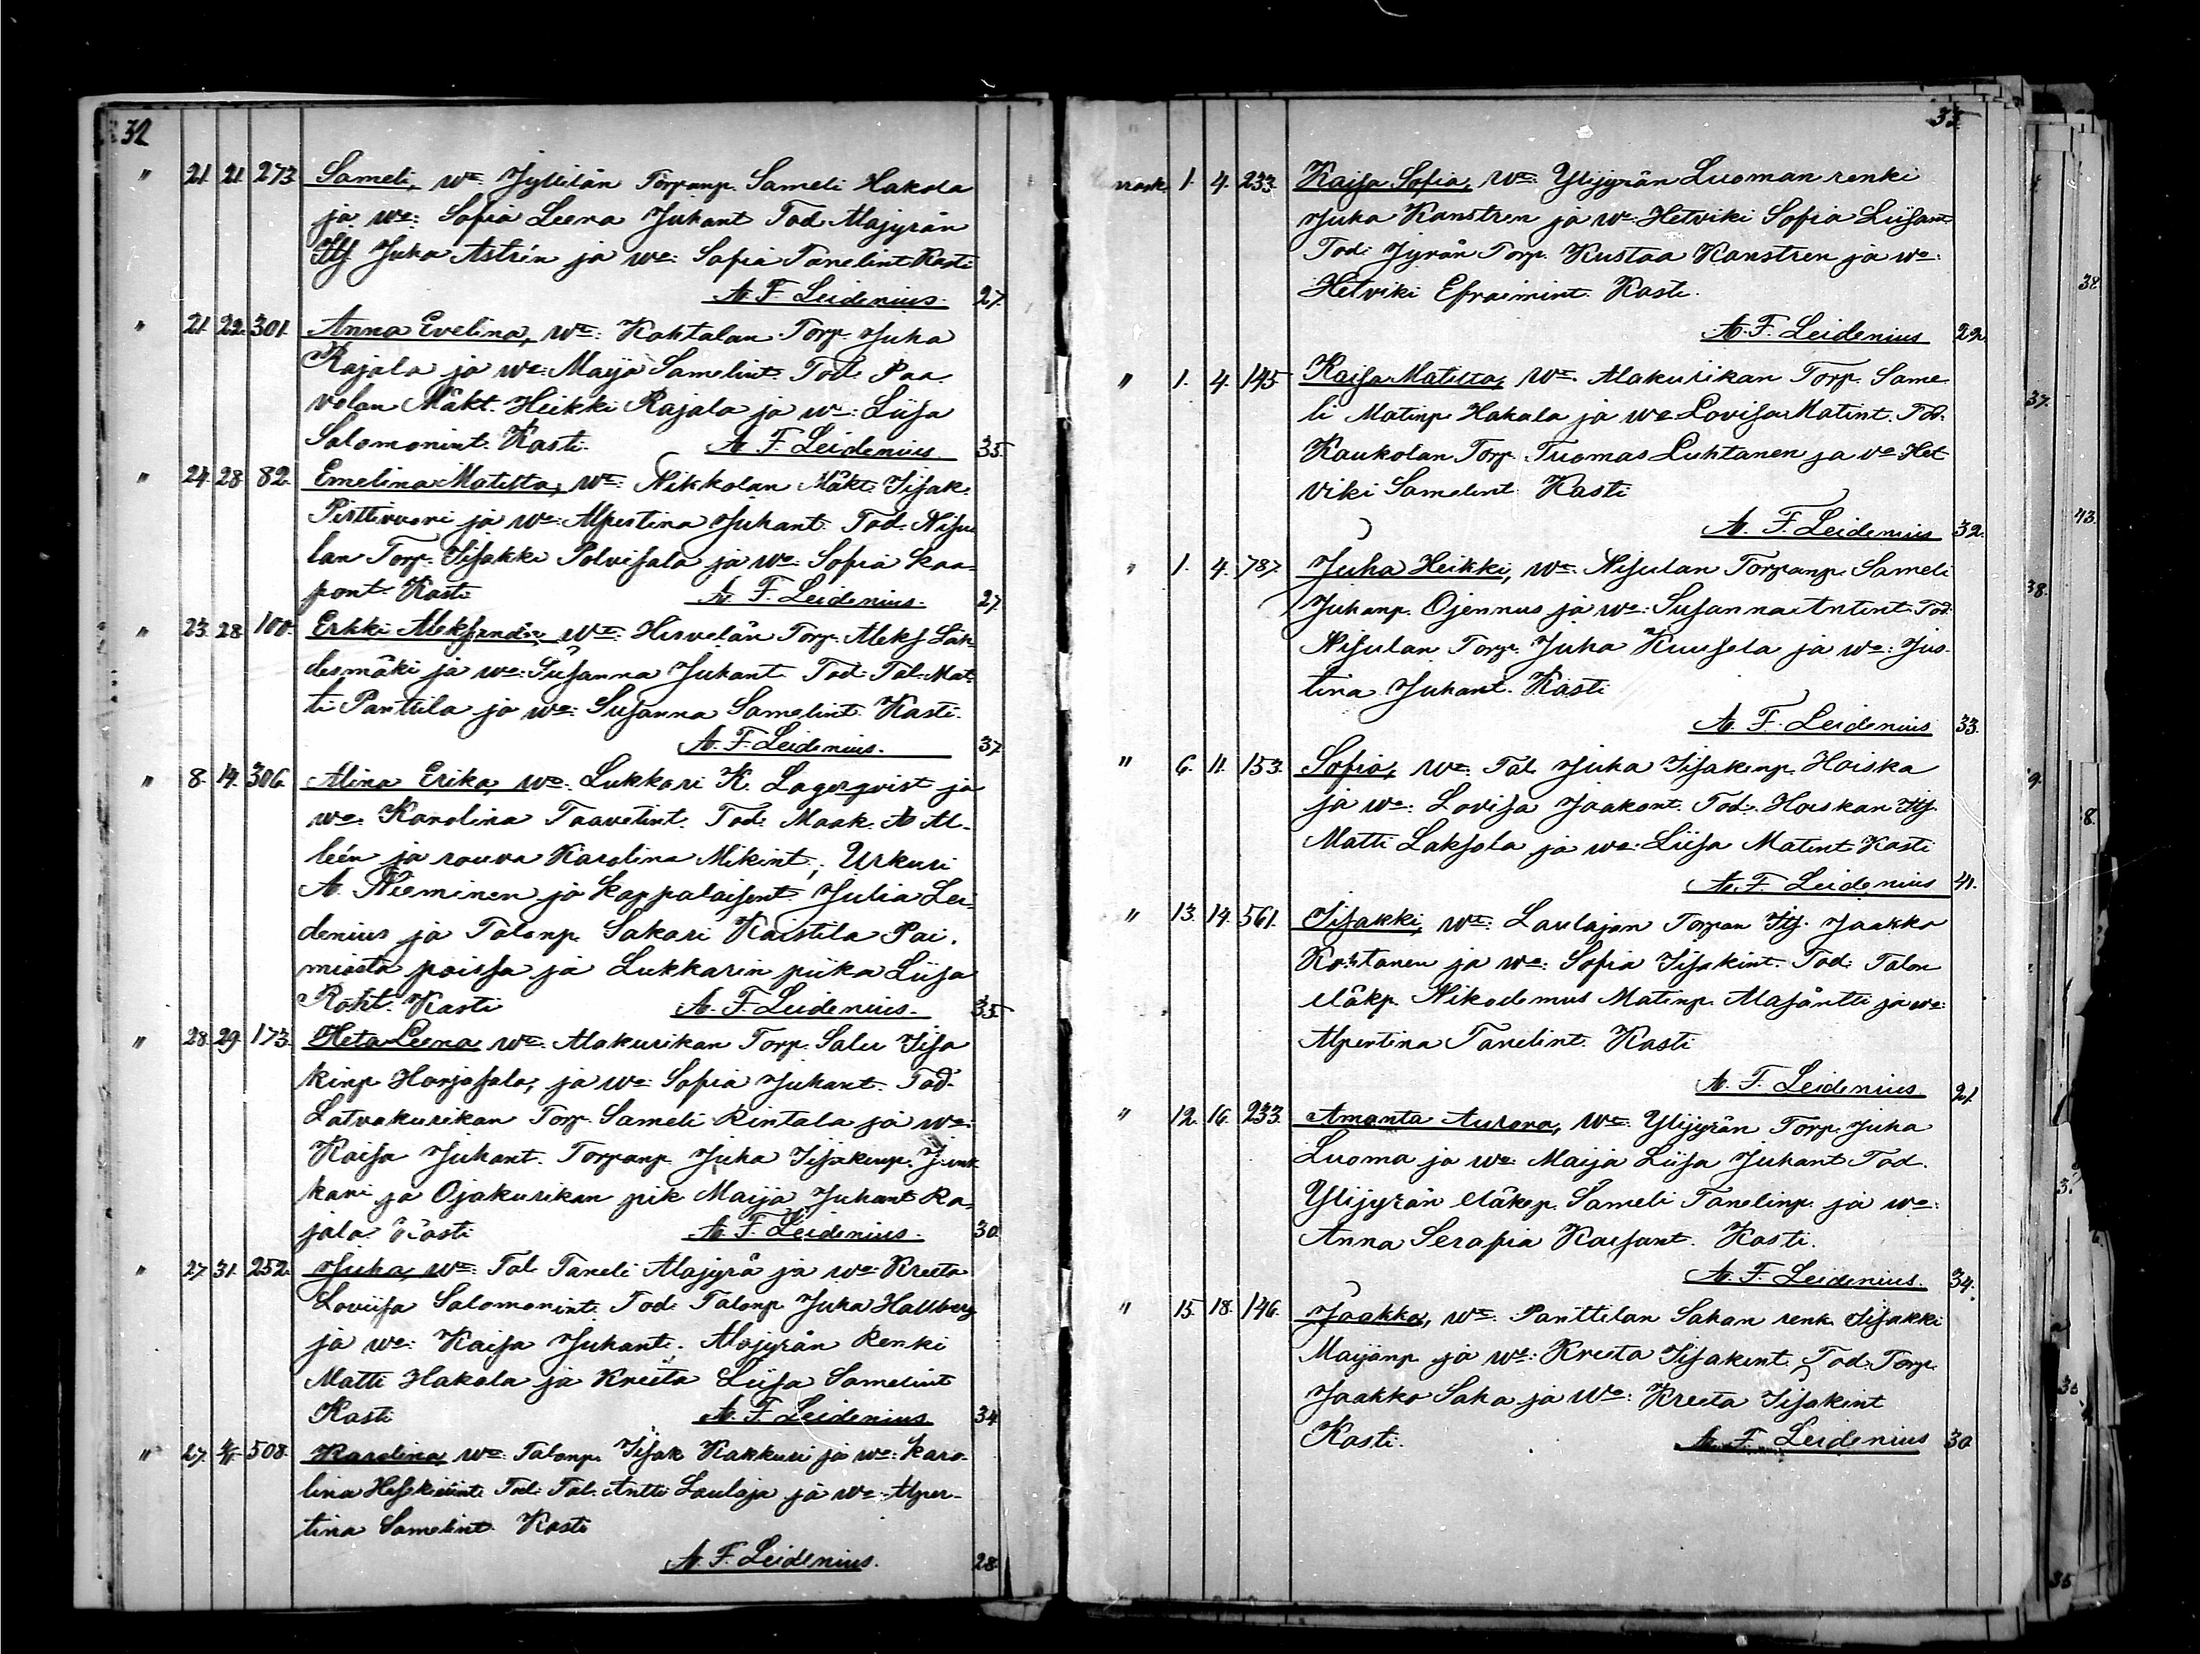 32
" 21 21 273 Sameli, wa: Jyllilän Torpanp. Sameli Hakola
ja wa: Sofia Leena Juhant Tod. Alajyrän
Itj Juha Astrén ja wa: Sofia Tanelint Kasti
A. F. Leidenius. 27.
" 21. 22. 301. Anna Evelina, wa: Kohtalan Torp. Juha
Rajala ja wa: Maija Samelint. Tod. Paa-
volan Mäkt. Heikki Rajala ja wa: Liisa
Salomonint. Kasti. A. F. Leidenius. 35.
" 24. 28. 82. Emelina Matilta, wa: Nikkolan Mäkt. Iisak
Pirttivuori ja wa: Alpertina Juhant. Tod. Nisu-
lan Torp. Iisakki Polvisala ja wa: Sofia Kaa-
pont. Kasti A. F. Leidenius. 27.
" 23. 28. 100. Erkki Aleksander, wa: Hirvelän Torp. Aleks. Läh-
desmäki ja wa: Susanna Juhant. Tod. Tal. Mat-
ti Panttila ja wa: Susanna Samelint. Kasti.
A. F. Leidenius. 37.
" 8. 14. 306. Alina Erika, wa: Lukkari K. Lagerqvist ja
wa: Karolina Taavetint. Tod. Maak. A Al-
leén ja rouva Karolina Mikint.; Urkuri
A. Nieminen ja kappalaisent. Julia Lei-
denius ja Talonp. Sakari Kaistila Pai-
miosta poissa ja Lukkarin piika Liisa
Roht. Kasti A. F. Leidenius. 35.
" 28. 29. 173. Heta Leena wa: Alakurikan Torp. Salu Iisa
kinp Harjasala, ja wa: Sofia Juhant. Tod.
Latvakurikan Torp. Sameli Rintala ja wa:
Kaisa Juhant. Torpanp. Juha Iisakinp.
kari ja Ojakurikan pik Maija Juhant Ra-
jala Kasti A. F. Leidenius. 30.
" 27. 31. 252. Juha, wa: Tal. Taneli Alajyrä ja wa: Kreeta
Loviisa Salomonint. Tod. Talonp Juha Hallberg
ja wa: Kaisa Juhant.; Alajyrän Renki
Matti Hakola ja Kreeta Liisa Samelint
Kasti A. F. Leidenius 34
" 27. 508. Karolina, wa: Talonp. Iisak Kakkuri ja wa: Karo-
lina Hiskiint. Tod. Tal. Antti Laulaja ja wa: Alper-
tina Samelint. Kasti
A. F. Leidenius. 28.
33
1. 4. 233. Kaisa Sofia, wa: Ylijyrän Luoman renki
Juha Kanstren ja wa: Hetviki Sofia Liisant
Tod. Jyrän Torp. Kustaa Kanstren ja wa:
Hetviki Efraimint. Kasti.
A. F. Leidenius 22.
" 1. 4. 145 Kaisa Matilta, wa: Alakurikan Torp. Same
li Matinp Hakala ja wa Lovisa Matint. Tod.
Kaukolan Torp. Tuomas Luhtanen ja va Het
viki Samelint. Kasti
A. F. Leidenius 32.
" 1. 4. 787. Juha Heikki, wa: Nisulan Torpanp. Sameli
Juhanp. Ojennus ja wa: Susanna Antint. Tod.
Nisulan Torp. Juha Kuusela ja wa: Jus-
tina Juhant. Kasti
A. F. Leidenius 33.
" 6. 11. 153. Sofia, wa: Tal. Juha Iisakinp. Hoiska
ja wa: Lovisa Jaakont. Tod. Hoiskan Itj.
Matti Laksola ja wa: Liisa Matint Kasti
A. F. Leidenius 41.
" 13. 14. 561. Iisakki, wa: Laulajan Torpan Itj. Jaakko
Kostanen ja wa: Sofia Iisakint. Tod. Talon
eläkp. Nikodemus Matinp. Alasäntti ja wa:
Alpertina Tanelint. Kasti
A. F. Leidenius. 21
" 12. 16. 233. Amanta Aurora, wa: Ylijyrän Torp. Juha
Luoma ja wa: Maija Liisa Juhant Tod.
Ylijyrän eläkep. Sameli Tanelinp. ja wa:
Anna Serafia Kaisant. Kasti.
A. F. Leidenius. 34.
" 15. 18. 146. Jaakko, wa: Panttilan Sahan renk. Iisakki
Maijanp. ja wa: Kreeta Iisakint. Tod. Torp.
Jaakko Saha ja Wa: Kreeta Iisakint
Kasti. A. F. Leidenius 30